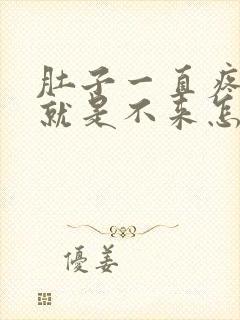 肚子一直疼
就是不来怎
優姜